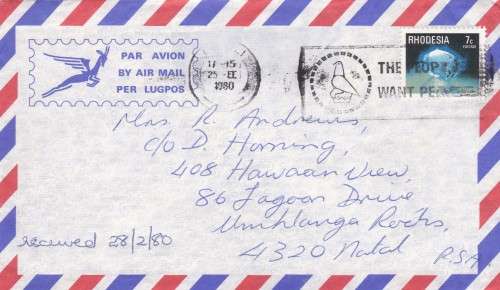 PAR AVION
BY AIR MAIL
PER LUGPOS
17 15
25 II
1980
RHODESIA
7c
THE PEOPLE
WANT PEACE
Mrs. R. Andrews,
c/o D. Horning,
408 Hawaan View,
86 Lagoon Drive
Umhlanga Rocks,
4320 Natal
R.S.A
received 28/2/80